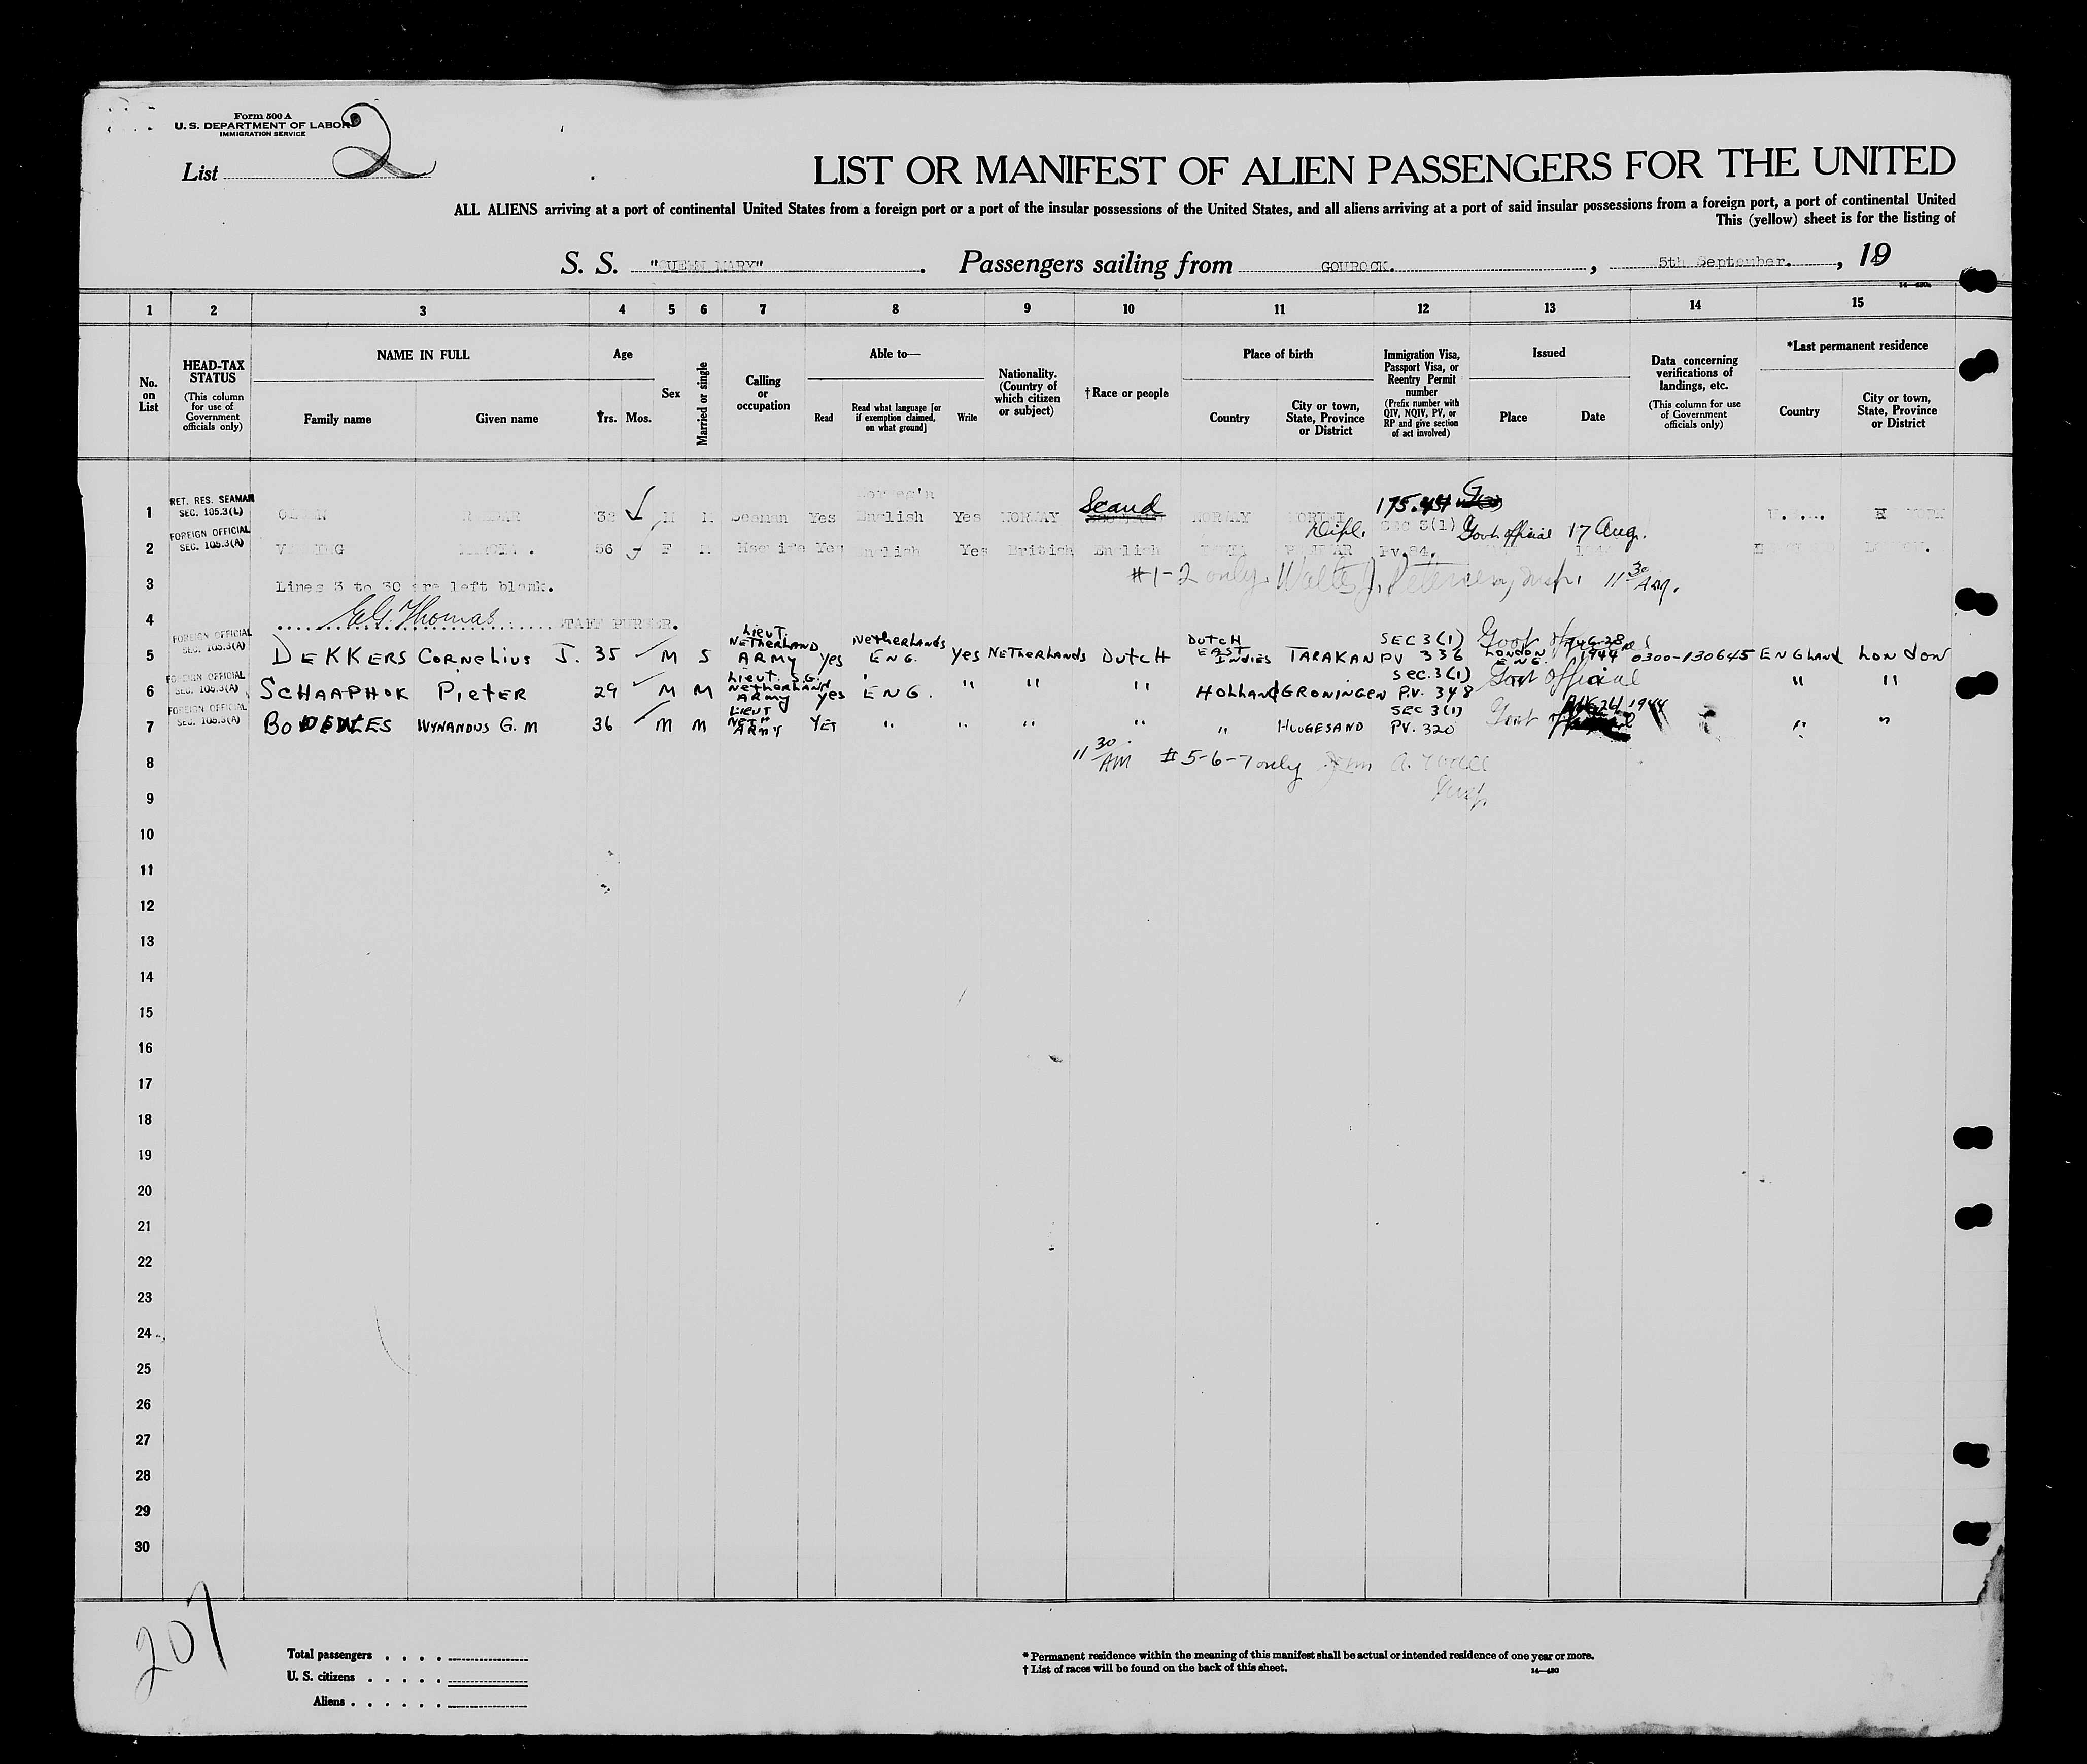 Form 500 A
U. S. DEPARTMENT OF LABOR
IMMIGRATION SERVICE
List 2
LIST OR MANIFEST OF ALIEN PASSENGERS FOR THE UNITED
ALL ALIENS arriving at a port of continental United States from a foreign port or a port of the insular possessions of the United States, and all aliens arriving at a port of said insular possessions from a foreign port, a port of continental United
This (yellow) sheet is for the listing of
S. S. "QUEEN MARY". Passengers sailing from GOUROCK. , 5th September. , 19
1 2 3 4 5 6 7 8 9 10 11 12 13 14 15
No. on List
HEAD-TAX STATUS
(This column for use of Government officials only)
NAME IN FULL
Family name Given name
Age
Yrs. Mos.
Sex
Married or single
Calling or occupation
Able to—
Read Read what language [or if exemption claimed, on what ground] Write
Nationality. (Country of which citizen or subject)
†Race or people
Place of birth
Country City or town, State, Province or District
Immigration Visa, Passport Visa, or Reentry Permit number
(Prefix number with QIV, NQIV, PV, or RP and give section of act involved)
Issued
Place Date
Data concerning verifications of landings, etc.
(This column for use of Government officials only)
*Last permanent residence
Country City or town, State, Province or District
1 RET. RES. SEAMAN SEC. 105.3(L) 38 M M Seaman Yes English Yes NORWAY Scand NORWAY
2 FOREIGN OFFICIAL SEC. 105.3(A) 56 F Yes English Yes British English Dipl. SEC 3(1) PV.84. Govt official 17 Aug. LONDON.
3 Lines 3 to 30 are left blank. #1-2 only. Walter J. 11 30 AM.
4 E.G. Thomas STAFF PURSER.
5 FOREIGN OFFICIAL SEC. 105.3(A) DEKKERS Cornelius J. 35 M S Lieut. NETHERLAND ARMY yes Netherlands ENG. yes NETHERLANDS DUTCH DUTCH EAST INDIES TARAKAN SEC 3(1) PV 336 Govt official LONDON ENG. AUG 28 1944 0300-130645 ENGLAND LONDON
6 FOREIGN OFFICIAL SEC. 105.3(A) SCHAAPHOK Pieter 29 M M Lieut. S.G. Netherland Army yes ENG. " " " HOLLAND GRONINGEN SEC.3(1) P.V. 348 Govt official " "
7 FOREIGN OFFICIAL SEC. 105.3(A) WYNANDUS G. M 36 M M LIEUT NETH ARMY YES " " " " " HOOGESAND SEC 3(1) PV. 320 Govt 1944 " "
8 11 30 AM #5-6-7 only John A.
9 Insp.
10
11
12
13
14
15
16
17
18
19
20
21
22
23
24
25
26
27
28
29
30
207
Total passengers . . . .
U. S. citizens . . . . .
Aliens . . . . . .
* Permanent residence within the meaning of this manifest shall be actual or intended residence of one year or more.
† List of races will be found on the back of this sheet.
14—430